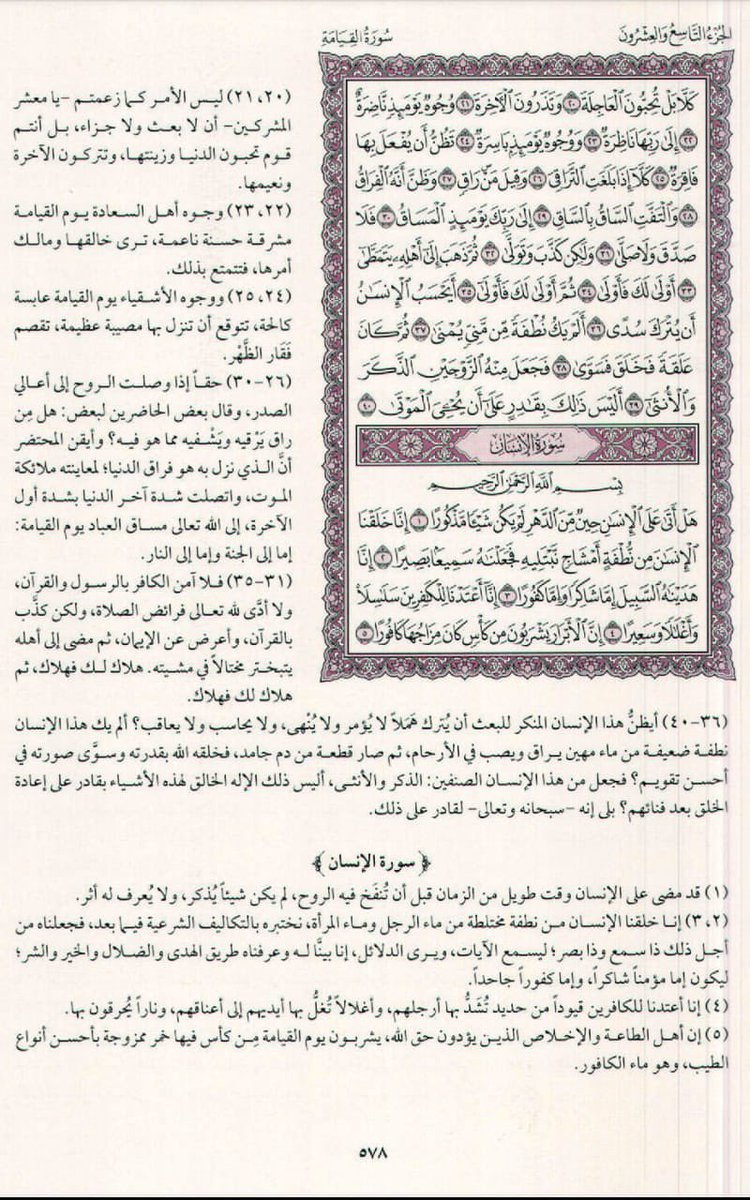 الجُزْءُ التَّاسِعُ وَالعِشْرُونَ
سُورَةُ القِيَامَةِ
كَلَّا بَلْ تُحِبُّونَ ٱلْعَاجِلَةَ ٢٠ وَتَذَرُونَ ٱلْآخِرَةَ ٢١ وُجُوهٌ يَوْمَئِذٍ نَّاضِرَةٌ
٢٢ إِلَىٰ رَبِّهَا نَاظِرَةٌ ٢٣ وَوُجُوهٌ يَوْمَئِذٍ بَاسِرَةٌ ٢٤ تَظُنُّ أَن يُفْعَلَ بِهَا
فَاقِرَةٌ ٢٥ كَلَّا إِذَا بَلَغَتِ ٱلتَّرَاقِيَ ٢٦ وَقِيلَ مَنْ رَاقٍ ٢٧ وَظَنَّ أَنَّهُ ٱلْفِرَاقُ
٢٨ وَٱلْتَفَّتِ ٱلسَّاقُ بِٱلسَّاقِ ٢٩ إِلَىٰ رَبِّكَ يَوْمَئِذٍ ٱلْمَسَاقُ ٣٠ فَلَا
صَدَّقَ وَلَا صَلَّىٰ ٣١ وَلَٰكِن كَذَّبَ وَتَوَلَّىٰ ٣٢ ثُمَّ ذَهَبَ إِلَىٰ أَهْلِهِۦ يَتَمَطَّىٰ
٣٣ أَوْلَىٰ لَكَ فَأَوْلَىٰ ٣٤ ثُمَّ أَوْلَىٰ لَكَ فَأَوْلَىٰ ٣٥ أَيَحْسَبُ ٱلْإِنسَٰنُ
أَن يُتْرَكَ سُدًى ٣٦ أَلَمْ يَكُ نُطْفَةً مِّن مَّنِيٍّ يُمْنَىٰ ٣٧ ثُمَّ كَانَ
عَلَقَةً فَخَلَقَ فَسَوَّىٰ ٣٨ فَجَعَلَ مِنْهُ ٱلزَّوْجَيْنِ ٱلذَّكَرَ
وَٱلْأُنثَىٰٓ ٣٩ أَلَيْسَ ذَٰلِكَ بِقَٰدِرٍ عَلَىٰٓ أَن يُحْـِۧيَ ٱلْمَوْتَىٰ ٤٠
سُورَةُ الإِنسَانِ
بِسْمِ ٱللَّهِ ٱلرَّحْمَٰنِ ٱلرَّحِيمِ
هَلْ أَتَىٰ عَلَى ٱلْإِنسَٰنِ حِينٌ مِّنَ ٱلدَّهْرِ لَمْ يَكُن شَيْـًٔا مَّذْكُورًا ١ إِنَّا خَلَقْنَا
ٱلْإِنسَٰنَ مِن نُّطْفَةٍ أَمْشَاجٍ نَّبْتَلِيهِ فَجَعَلْنَٰهُ سَمِيعًۢا بَصِيرًا ٢ إِنَّا
هَدَيْنَٰهُ ٱلسَّبِيلَ إِمَّا شَاكِرًا وَإِمَّا كَفُورًا ٣ إِنَّآ أَعْتَدْنَا لِلْكَٰفِرِينَ سَلَٰسِلَا۟
وَأَغْلَٰلًا وَسَعِيرًا ٤ إِنَّ ٱلْأَبْرَارَ يَشْرَبُونَ مِن كَأْسٍ كَانَ مِزَاجُهَا كَافُورًا ٥
(٢٠، ٢١) ليس الأمر كما زعمتم -يا معشر
المشركين- أن لا بعث ولا جزاء، بل أنتم
قوم تحبون الدنيا وزينتها، وتتركون الآخرة
ونعيمها.
(٢٢، ٢٣) وجوه أهل السعادة يوم القيامة
مشرقة حسنة ناعمة، ترى خالقها ومالك
أمرها، فتتمتع بذلك.
(٢٤، ٢٥) ووجوه الأشقياء يوم القيامة عابسة
كالحة، تتوقع أن تنزل بها مصيبة عظيمة، تقصم
فَقَار الظَّهْر.
(٢٦-٣٠) حقاً إذا وصلت الروح إلى أعالي
الصدر، وقال بعض الحاضرين لبعض: هل مِن
راق يَرْقيه ويَشْفيه مما هو فيه؟ وأيقن المحتضر
أنَّ الذي نزل به هو فراق الدنيا؛ لمعاينته ملائكة
الموت، واتصلت شدة آخر الدنيا بشدة أول
الآخرة، إلى الله تعالى مساق العباد يوم القيامة:
إما إلى الجنة وإما إلى النار.
(٣١-٣٥) فلا آمن الكافر بالرسول والقرآن،
ولا أدَّى لله تعالى فرائض الصلاة، ولكن كذَّب
بالقرآن، وأعرض عن الإيمان، ثم مضى إلى أهله
يتبختر مختالاً في مشيته. هلاك لك فهلاك، ثم
هلاك لك فهلاك.
(٣٦-٤٠) أيظنُّ هذا الإنسان المنكر للبعث أن يُترك هَمَلاً لا يُؤمر ولا يُنْهى، ولا يحاسب ولا يعاقب؟ ألم يك هذا الإنسان
نطفة ضعيفة من ماء مهين يراق ويصب في الأرحام، ثم صار قطعة من دم جامد، فخلقه الله بقدرته وسوَّى صورته في
أحسن تقويم؟ فجعل من هذا الإنسان الصنفين: الذكر والأنثى، أليس ذلك الإله الخالق لهذه الأشياء بقادر على إعادة
الخلق بعد فنائهم؟ بلى إنه -سبحانه وتعالى- لقادر على ذلك.
﴿ سورة الإنسان ﴾
(١) قد مضى على الإنسان وقت طويل من الزمان قبل أن تُنفَخ فيه الروح، لم يكن شيئاً يُذكر، ولا يُعرف له أثر.
(٢، ٣) إنا خلقنا الإنسان من نطفة مختلطة من ماء الرجل وماء المرأة، نختبره بالتكاليف الشرعية فيما بعد، فجعلناه من
أجل ذلك ذا سمع وذا بصر؛ ليسمع الآيات، ويرى الدلائل، إنا بينَّا له وعرفناه طريق الهدى والضلال والخير والشر؛
ليكون إما مؤمناً شاكراً، وإما كفوراً جاحداً.
(٤) إنا أعتدنا للكافرين قيوداً من حديد تُشَدُّ بها أرجلهم، وأغلالاً تُغلُّ بها أيديهم إلى أعناقهم، وناراً يُحرقون بها.
(٥) إن أهل الطاعة والإخلاص الذين يؤدون حق الله، يشربون يوم القيامة مِن كأس فيها خمر ممزوجة بأحسن أنواع
الطيب، وهو ماء الكافور.
٥٧٨